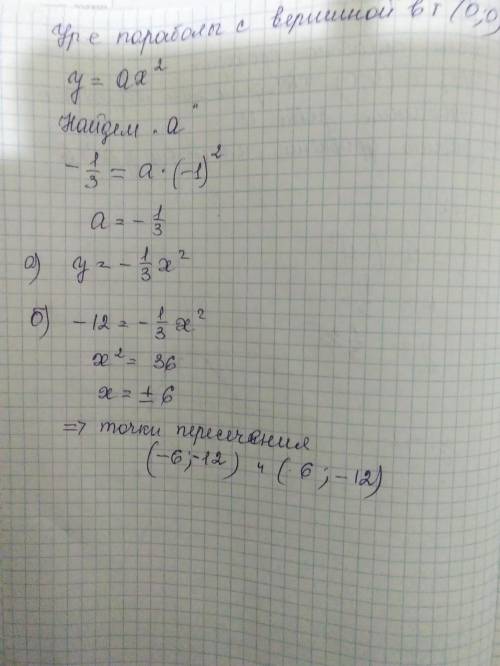 Ур-е параболы с вершиной в т (0;0)
y = ax²
Найдем "a"
-1/3 = a·(-1)²
a = -1/3
а) y = -1/3 x²
б) -12 = -1/3 x²
x² = 36
x = ±6
=> точки пересечения
(-6;-12) и (6;-12)